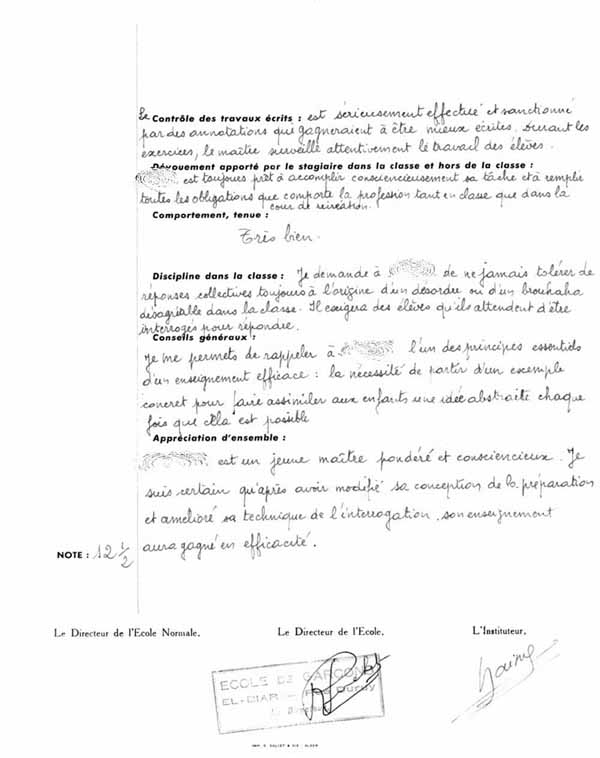 Le Contrôle des travaux écrits : est sérieusement effectué et sanctionné
par des annotations que gagneraient à être mieux écrites. Durant les
exercices, le maître surveille attentivement le travail des élèves.
Dévouement apporté par le stagiaire dans la classe et hors de la classe :
est toujours prêt à accomplir consciencieusement sa tâche et à remplir
toutes les obligations que comporte la profession tant en classe que dans la
cour de récréation.
Comportement, tenue :
Très bien.
Discipline dans la classe : Je demande à de ne jamais tolérer de
réponses collectives toujours à l'origine d'un désordre ou d'un brouhaha
désagréable dans la classe. Il exigera des élèves qu'ils attendent d'être
interrogés pour répondre.
Conseils généraux :
Je me permets de rappeler à l'un des principes essentiels
d'un enseignement efficace : la nécessité de partir d'un exemple
concret pour faire assimiler aux enfants une idée abstraite chaque
fois que cela est possible
Appréciation d'ensemble :
est un jeune maître pondéré et consciencieux. Je
suis certain qu'après avoir modifié sa conception de la préparation
et amélioré sa technique de l'interrogation, son enseignement
aura gagné en efficacité.
NOTE : 12 1/2
Le Directeur de l'Ecole Normale, Le Directeur de l'Ecole, L'Instituteur,
ECOLE DE GARÇONS
EL-BIAR — Duruy